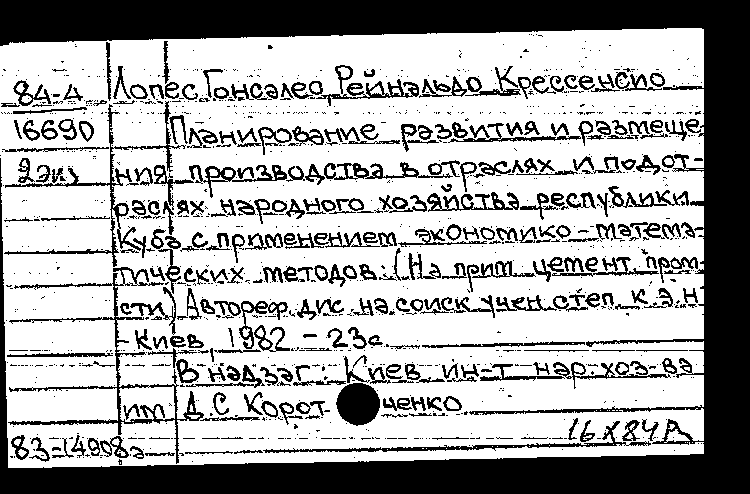 84-4 Лопес Гонсалес, Рейнальдо Крессенсио
16690 Планирование развития и размеще
2 экз ния производства в отраслях и подот-
раслях народного хозяйства республики
Куба с применением экономико-матема-
тических методов: (На прим. цемент. пром-
сти) Автореф. дис. на соиск. учен. степ. к. э. н
- Киев, 1982 - 23с.
В надзаг: Киев. ин-т нар. хоз-ва
им Д. С. Коротченко
16 X 84
83-14908а